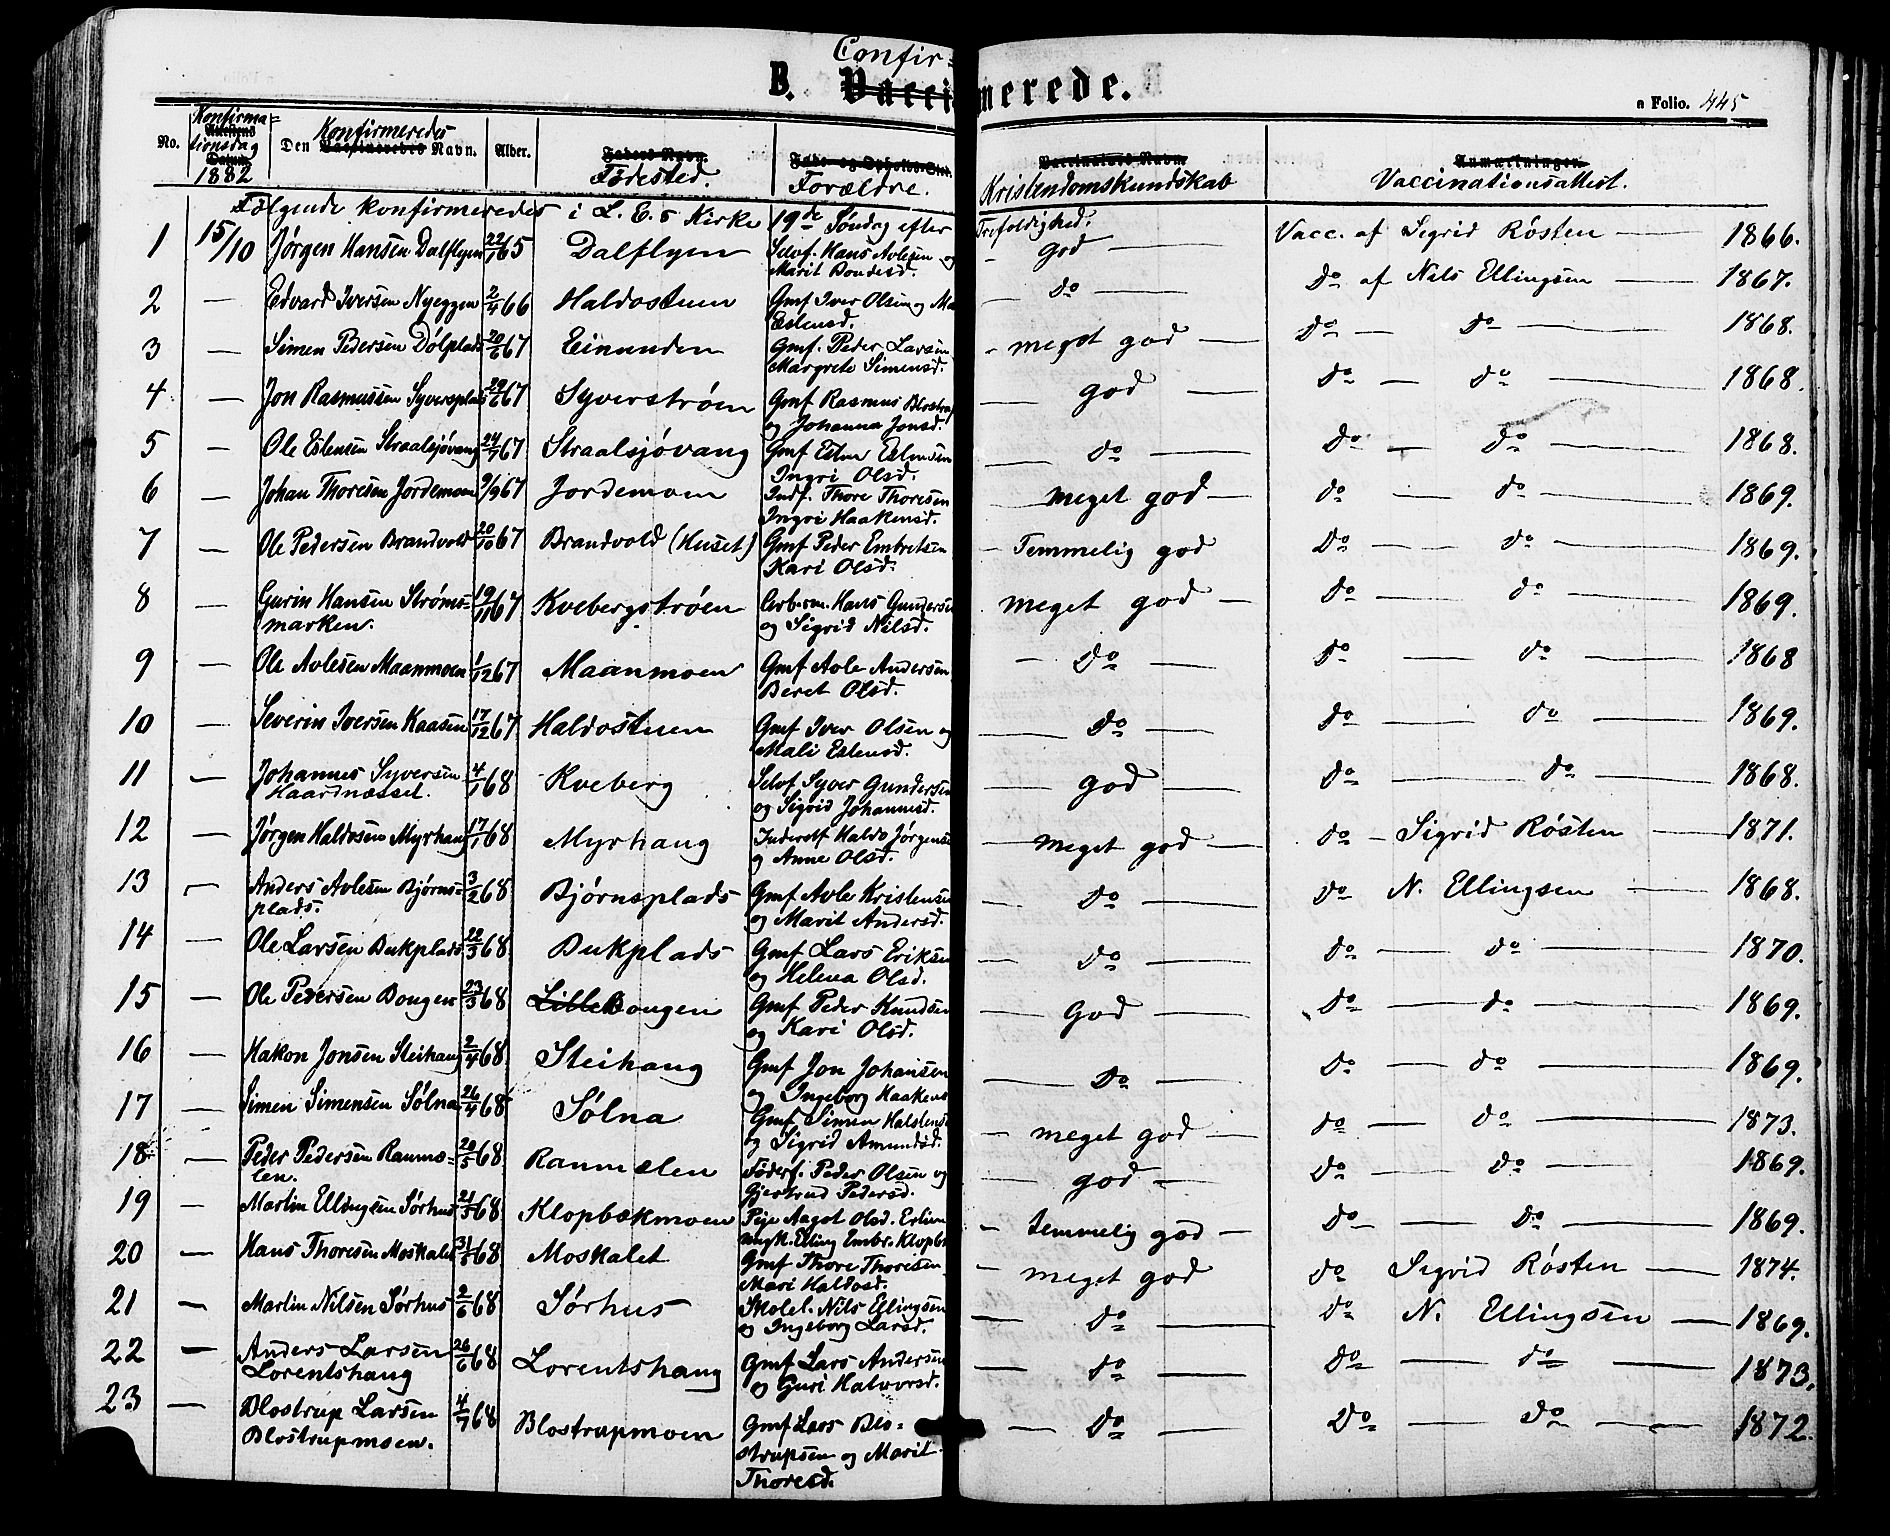 Confir-
B. Vaccinerede.
a Folio. 445
No. Konfirmationsdag Attestens Datum. 1882 Den Konfirmeredes Vaccineredes Navn. Alder. Faders Navn. Fødested. Føde- og Opholds-Sted. Forældre. Vaccinators Navn. Kristendomskundskab Anmærkninger. Vaccinationsattest.
Følgende konfirmeredes i L. E. s Kirke 19de Søndag efter Trefoldighed.
1 15/10 Jørgen Hansen Dalflyen 22/1 65 Dalflyen Selvf. Hans Avlesen og Marit Bondesd. - god — Vacc. af Sigrid Røsten — 1866.
2 — Edvard Iversen Nyeggen 2/4 66 Haldostuen Gmf Iver Olsen og Ma Eslensd. — do — Do af Nils Ellingsen — 1867.
3 — Simen Pedersen Dølplads 20/6 67 Einunden Gmf. Peder Larsen Margrete Simensd. - meget god — Do — Do — 1868.
4 — Jon Rasmussen Syversplads 29/6 67 Syverstrøen Gmf Rasmus Blostru og Johanna Jonsd. — god — Do — Do — 1868.
5 — Ole Estensen Straalsjøvang 24/7 67 Straalsjøvang Gmf Esten Estensen Ingri Olsd. — do — Do — Do — 1868.
6 — Johan Thoresen Jordemoen 9/9 67 Jordemoen Indf. Thore Thoresen Ingri Haakensd. — meget god — do — do — 1869.
7 — Ole Pedersen Brandvold 20/10 67 Brandvold (Huset) Gmf Peder Embretsen Kari Olsd. - Temmelig god Do — do — 1869.
8 — Gurin Hansen Strømsmarken. 19/11 67 Kvebergstrøen Arbsm. Hans Gundersen og Sigrid Nilsd. meget god — do — do — 1869.
9 — Ole Avlesen Maanmoen 1/12 67 Maanmoen Gmf Avle Andersen Beret Olsd. — Do — Do — do — 1868
10 — Severin Iversen Kaasen 17/12 67 Haldostuen Gmf Iver Olsen og Mali Eslensd. — Do — Do — do — 1869.
11 — Johannes Syversen Haardnæsset. 4/1 68 Kveberg Selvf Syver Gundersen og Sigrid Johannesd. — god — do — do — 1868.
12 — Jørgen Haldosen Myrhaug 17/1 68 Myrhaug Inderstf Haldo Jørgense g Anne Olsd. — meget god — do — Sigrid Røsten — 1871.
13 — Anders Avlesen Bjørnsplads. 3/2 68 Bjørnsplads Gmf Avle Kristensen og Marit Andersd. — Do — Do N. Ellingsen — 1868.
14 — Ole Larsen Bukplads 22/3 68 Bukplads Gmf Lars Eriksen og Helena Olsd. — Do — Do — do — 1870.
15 — Ole Pedersen Bongen 23/3 68 Lille Bongen Gmf Peder Knudsen og Kari Olsd. — God — Do — do — 1869.
16 — Hakon Jonsen Steihaug 2/4 68 Steihaug Gmf Jon Johansen og Ingeborg Haakens — Do — do — do — 1869.
17 — Simen Simensen Sølna 26/4 68 Sølna Gmf Simen Halstens og Sigrid Amundsd. — meget god — do — do — 1873.
18 — Peder Pedersen Raumælen. 20/5 68 Raumælen Føderf. Peder Olsen og Gjertrud Pedersd. — god — do — do — 1869.
19 — Martin Ellingsen Sørhus 21/5 68 Klopbækmoen Pige Aagot Olsd. Erlien ungk. Elling Embr. Klopb — temmelig god — do — do — 1869.
20 — Hans Thoresen Moskalet 31/5 68 Moskalet Gmf Thore Thoresen Mari Haldosd. — meget god do Sigrid Røsten — 1874.
21 — Martin Nilsen Sørhus 2/6 68 Sørhus Skolel. Nils Ellingsen og Ingeborg Larsd. — do — do N. Ellingsen — 1869.
22 — Anders Larsen Lorentshaug 26/6 68 Lorentshaug Gmf Lars Andersen og Guri Halvorsd. — do — do — do — 1873.
23 — Blostrup Larsen Blostrupmoen. 4/7 68 Blostrupmoen Gmf Lars Blostrupsen og Marit Thoresd. — Do — Do — Do — 1872.